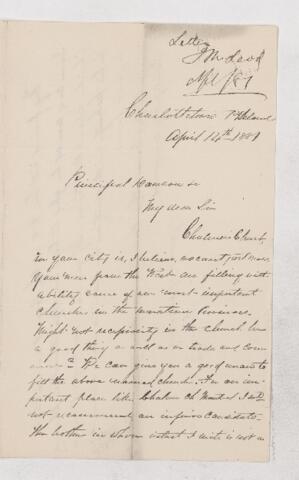 Letter
J M Leod
Apl /81
Charlottetown P E Island
April 14th 1881
Principal
My dear Sir
Chalmers Church,
in your city is, I believe, vacant just now.
Your men from the West are filling with
ability some of our most important
churches in the maritime provinces.
Might not reciprocity in the church be
a good thing as well as in trade and com
merce? We can give you a good man to
fill the above named church. For an im
portant place like Chalmers Ch Montreal I would
not recommend an inferior candidate.
The brother in whose interest I write is not a